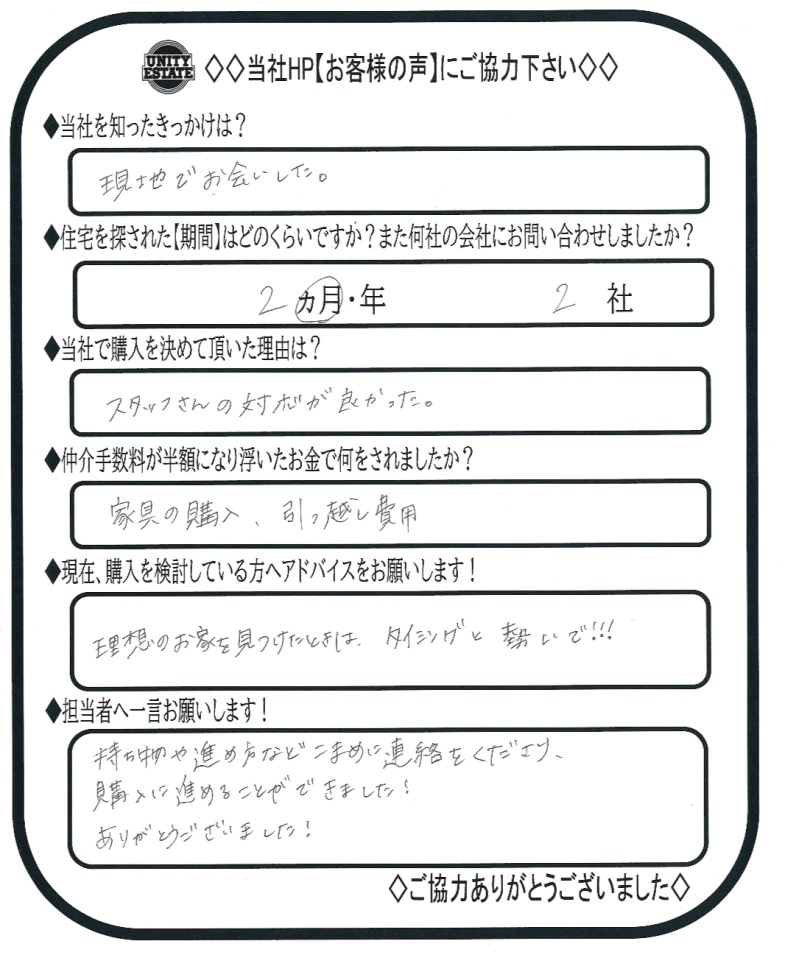 UNITY
ESTATE
◇◇当社HP【お客様の声】にご協力下さい◇◇
◆当社を知ったきっかけは？
現地でお会いした。
◆住宅を探された【期間】はどのくらいですか？また何社の会社にお問い合わせしましたか？
2 ヵ月・年 2 社
◆当社で購入を決めて頂いた理由は？
スタッフさんの対応が良かった。
◆仲介手数料が半額になり浮いたお金で何をされましたか？
家具の購入、引っ越し費用
◆現在、購入を検討している方へアドバイスをお願いします！
理想のお家を見つけたときは、タイミングと勢いで!!!
◆担当者へ一言お願いします！
持ち物や進め方などこまめに連絡をくださり、
購入に進めることができました！
ありがとうございました！
◇ご協力ありがとうございました◇